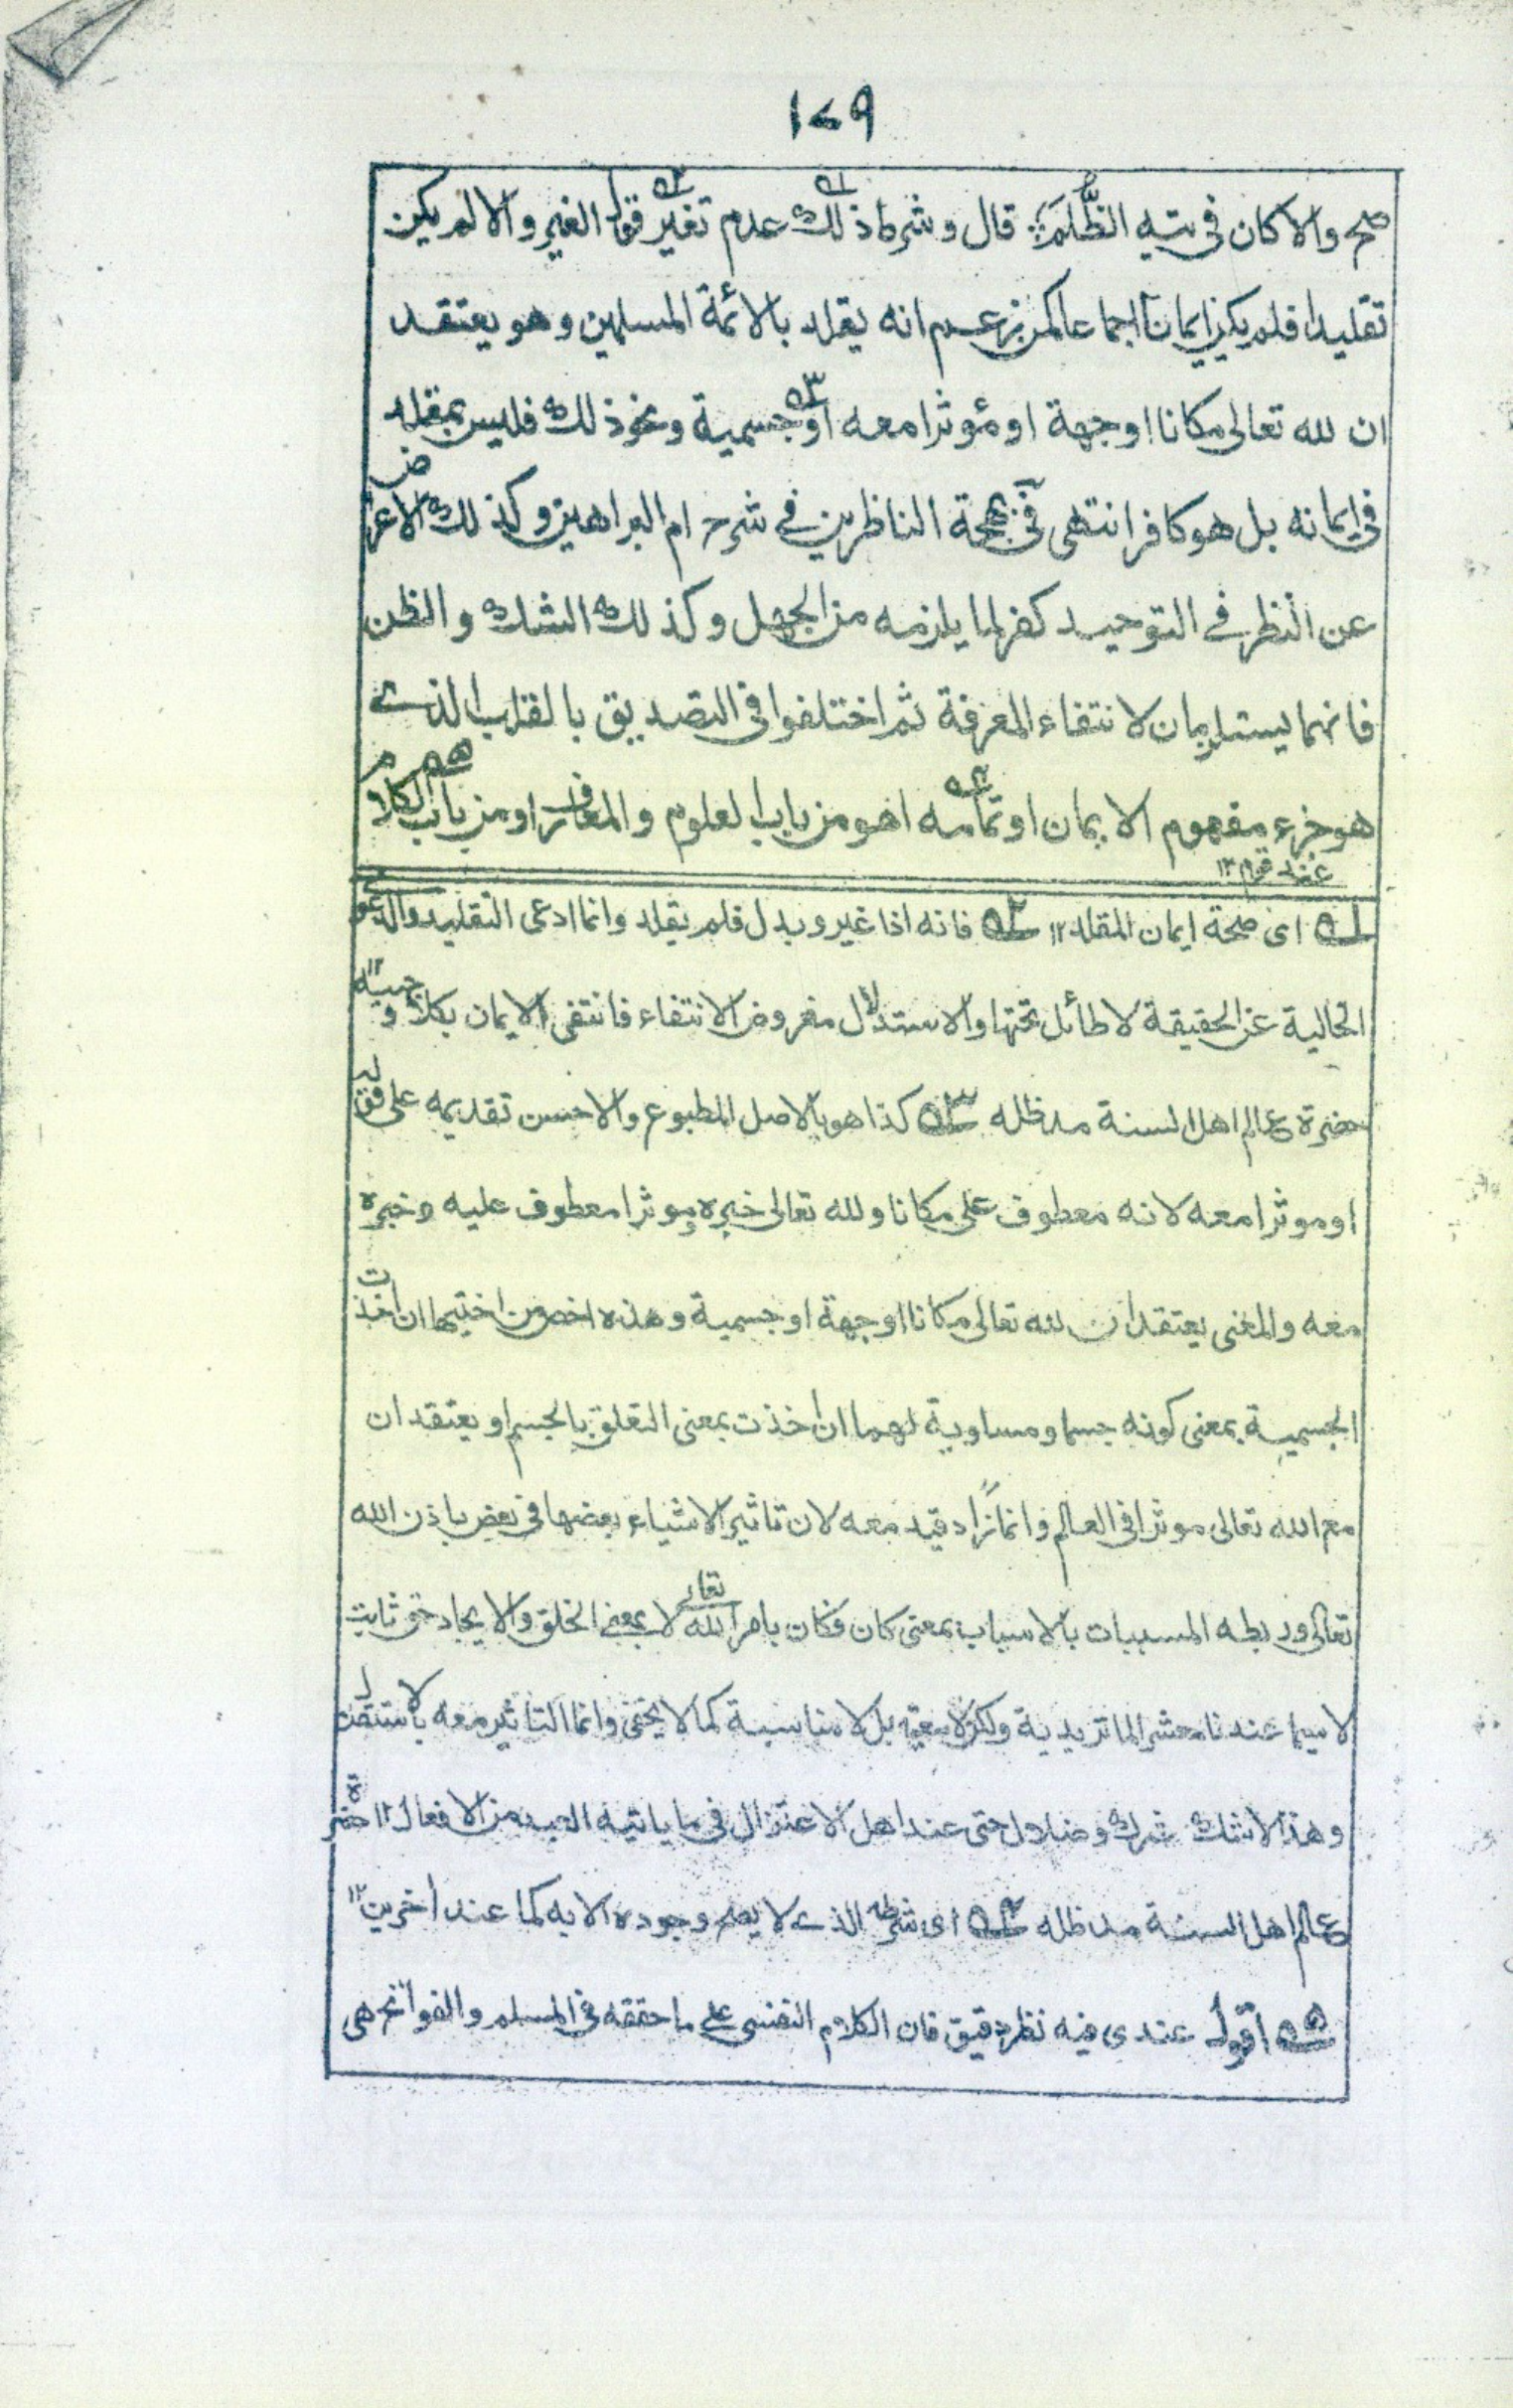 ١٧٩
صح والا كان فى تيه الظُّلَم قال وشرط ذلك عدم تغير قول الغير والا لم يكن
تقليدا فلم يكن ايمانا اجماعا كمن زعم انه يقلد بالائمة المسلمين وهو يعتقد
ان لله تعالى مكانا او جهة او مؤثرا معه او جسمية ونحو ذلك فليس بمقلد
فى ايمانه بل هو كافر انتهى فى بهجة الناظرين فے شرح ام البراهين وكذلك الاعراض
عن النظر فے التوحيد كفر لما يلزمه من الجهل وكذلك الشك والظن
فانهما يستلزمان لانتفاء المعرفة ثم اختلفوا فى التصديق بالقلب الذے
هو جزء مفهوم الايمان او تمامه اهو من باب العلوم والمعارف او من باب الكلام
عند قوم ١٢
١ اى صحة ايمان المقلد ١٢ ٢ فانه اذا غير وبدل فلم يقلد وانما ادعى التقليد والدعوى
الخالية عن الحقيقة لا طائل تحتها والاستدلال مفروض الانتفاء فانتفى الايمان بكلا وجهيه ١٢
حضرة عالم اهل السنة مد ظله ٣ كذا هو بالاصل المطبوع والاحسن تقديمه على قوله
او موثرا معه لانه معطوف على مكانا ولله تعالى خبره وموثرا معطوف عليه وخبره
معه والمغنى يعتقد ان لله تعالى مكانا او جهة او جسمية وهذه اخص من اختيها ان اخذت
الجسمية بمعنى كونه جسما ومساوية لهما ان اخذت بمعنى التعلق بالجسم او يعتقد ان
مع الله تعالى موثرا فى العالم وانما زاد قيد معه لان تاثير الاشياء بعضها فى بعض باذن الله
تعالى وربطه المسببات بالاسباب بمعنى كان فكان بامر الله تعالے لا بمعنے الخلق والايجاد حق ثابت
لا سيما عندنا معشر الماتريدية ولكن لا معية بل لا مناسبة كما لا يخفى وانما التاثير معه بالاستقلال
وهذا لا شك شرك وضلال حتى عند اهل الاعتزال فى ما ياتيه العبد من الافعال ١٢ حضرة
عالم اهل السنة مد ظله ٤ اى شرطه الذے لا يصح وجوده الا به كما عند اخرين ١٢
٥ اقول عندى فيه نظر دقيق فان الكلام النفسى على ما حققه فى المسلم والفواتح هى